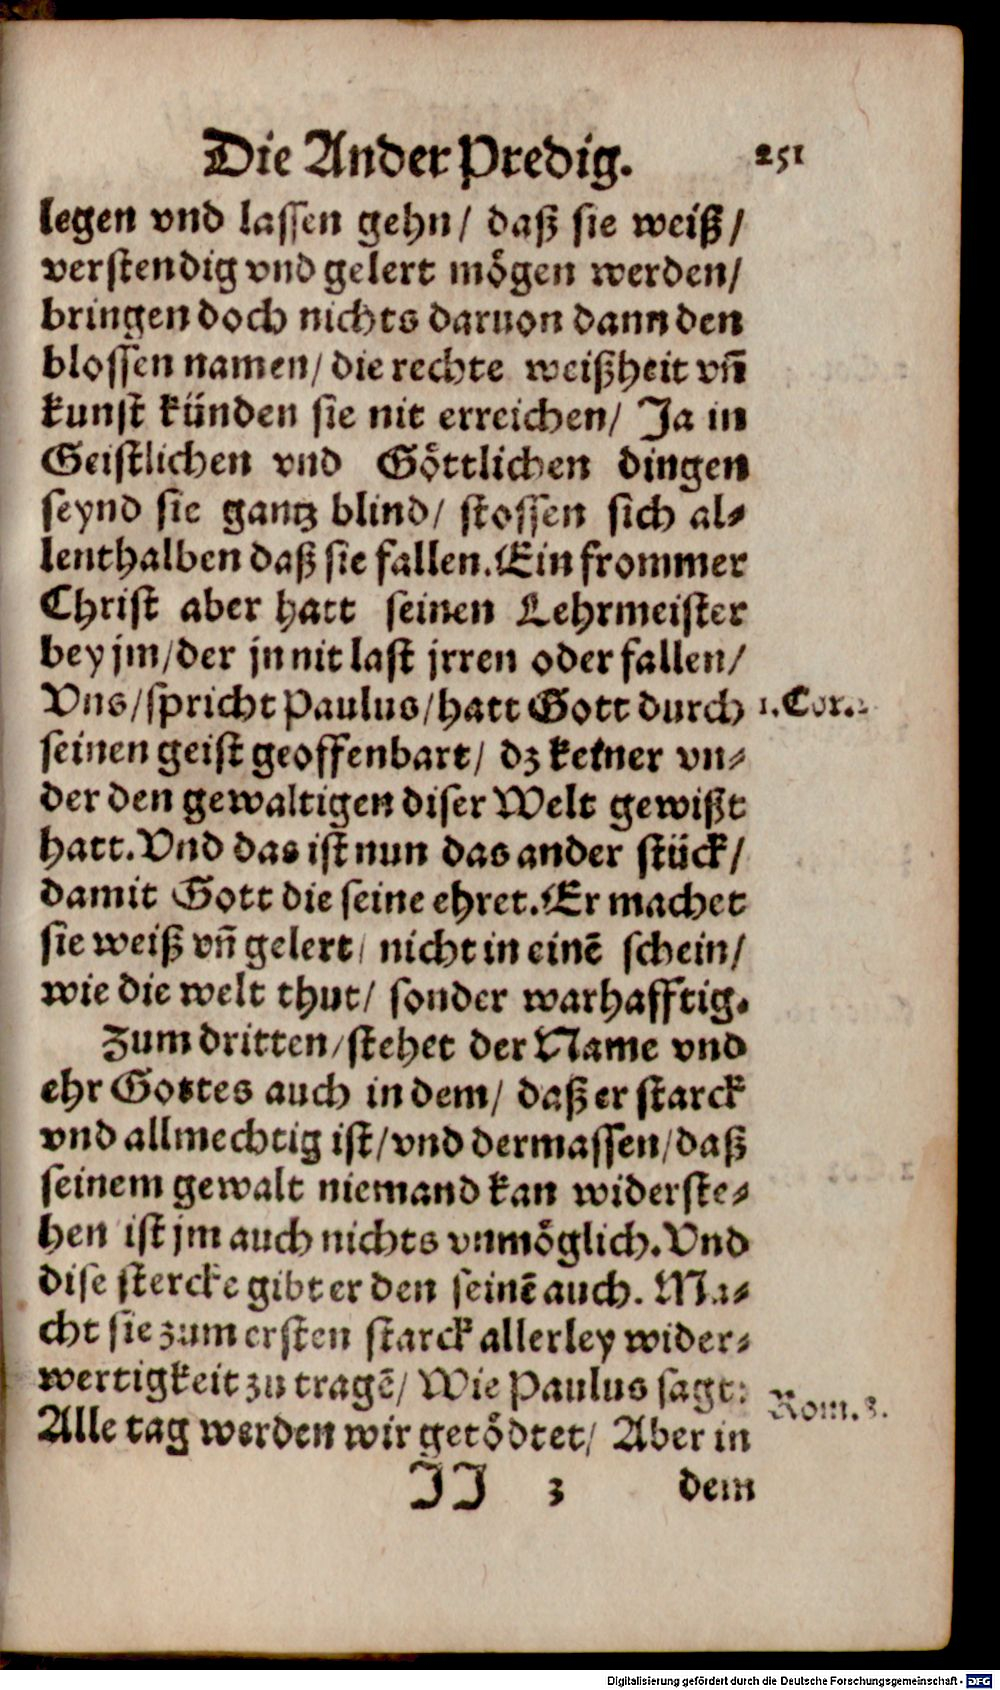 Die Ander Predig. 251
legen vnd lassen gehn/ daß sie weiß/
verstendig vnd gelert mögen werden/
bringen doch nichts daruon dann den
blossen namen/ die rechte weißheit vn̄
kunst künden sie nit erreichen/ Ja in
Geistlichen vnd Göttlichen dingen
seynd sie gantz blind/ stossen sich al-
lenthalben daß sie fallen. Ein frommer
Christ aber hatt seinen Lehrmeister
bey jm/ der jn nit last jrren oder fallen/
Vns/ spricht Paulus/ hatt Gott durch 1. Cor. 2
seinen geist geoffenbart/ dz keiner vn-
der den gewaltigen diser Welt gewißt
hatt. Vnd das ist nun das ander stück/
damit Gott die seine ehret. Er machet
sie weiß vn̄ gelert/ nicht in einē schein/
wie die welt thut/ sonder warhafftig.
Zum dritten/ stehet der Name vnd
ehr Gottes auch in dem/ daß er starck
vnd allmechtig ist/ vnd dermassen/ daß
seinem gewalt niemand kan widerste-
hen ist jm auch nichts vnmöglich. Vnd
dise stercke gibt er den seinē auch. Ma-
cht sie zum ersten starck allerley wider-
wertigkeit zu tragē/ Wie Paulus sagt: Rom. 8.
Alle tag werden wir getödtet/ Aber in
JJ 3 dem
Digitalisierung gefördert durch die Deutsche Forschungsgemeinschaft - DFG